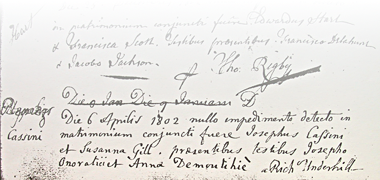 Hart
in matrimonium conjuncti fuere Edwardus Hart
& Francisca Scott. Testibus praesentibus Francisco Delahunt
& Jacobo Jackson.
Tho. Rigby
Die 9 Jan Die 9 Januarii D
Cassini
Die 6 Aprilis 1802 nullo impedimento detecto in
matrimonium conjuncti fuere Josephus Cassini
et Susanna Gill. praesentibus testibus Josepho
Onoratii et Anna Demoutihié
Rich Underhill